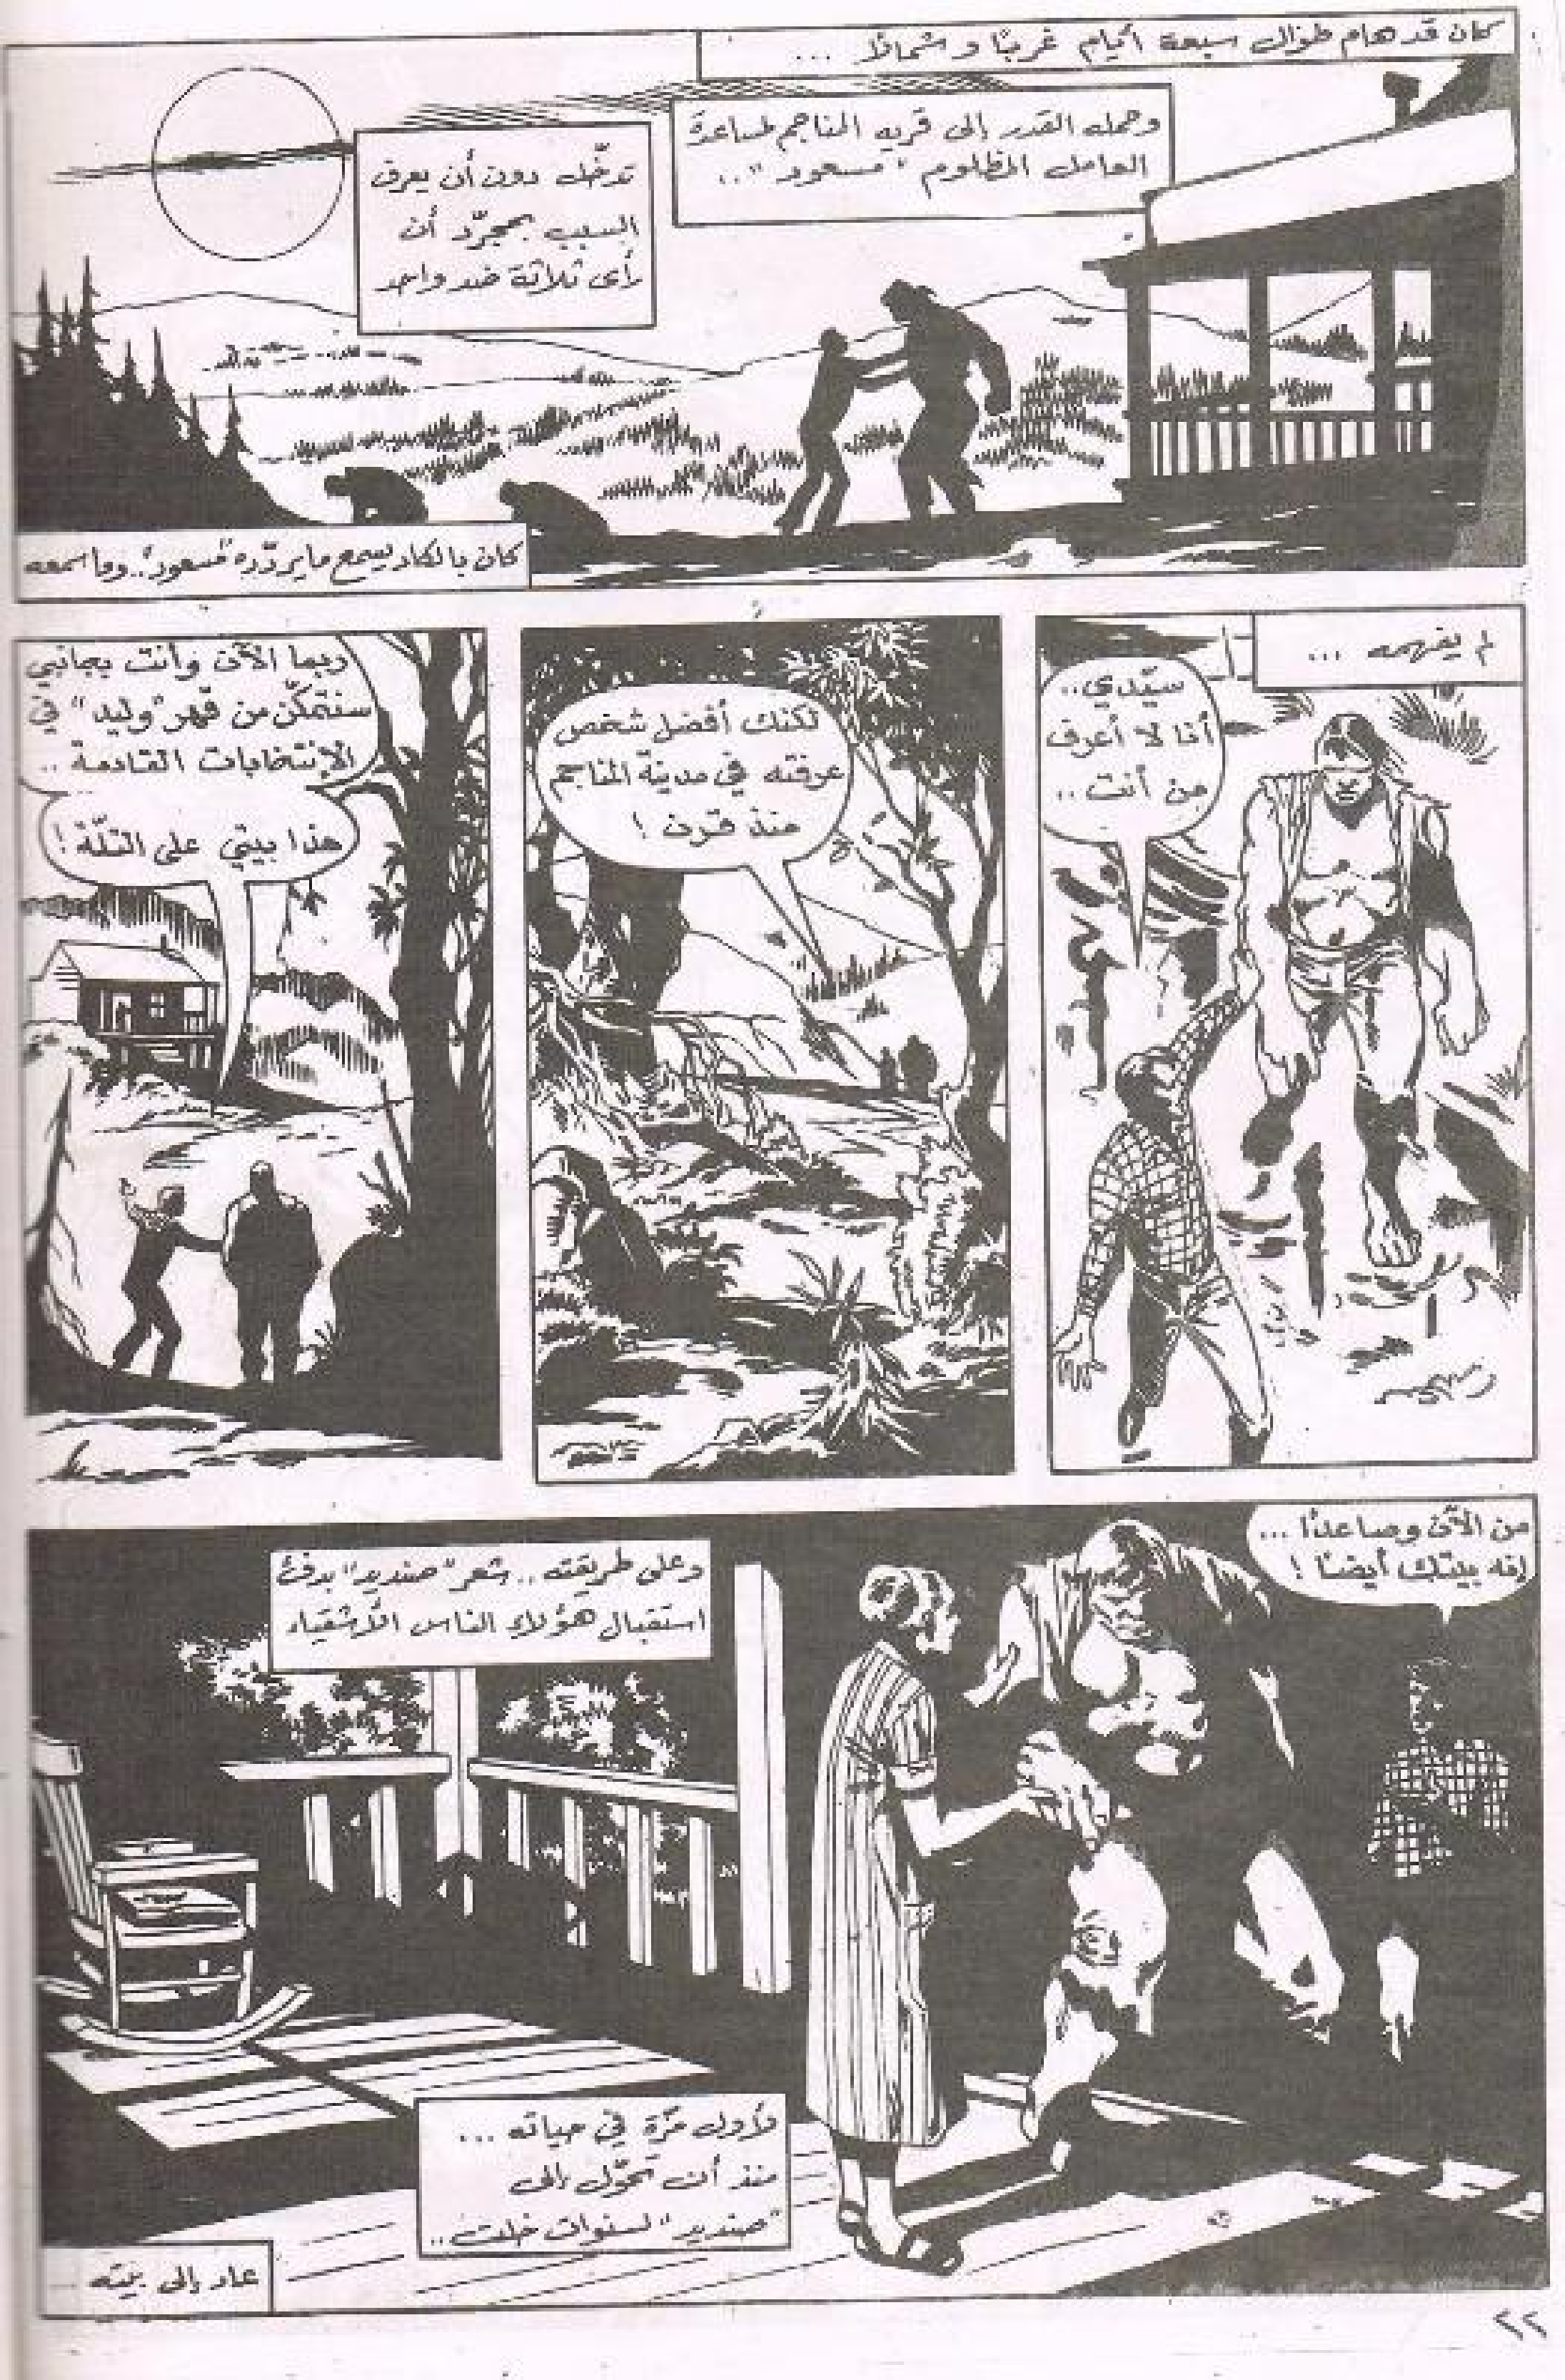 كان قد هام طوال سبعة أيام غربًا و شمالاً ...
وحمله القدر إلى قريه المناجم لمساعدة
العامل المظلوم "مسعود"..
تدخّل دون أن يعرف
السبب بمجرّد أن
رأى ثلاثة ضد واحد
كان بالكاد يسمع ما يردّده "مسعود".. وما سمعه
لم يفهمه ...
سيّدي..
أنا لا أعرف
من أنت ..
لكنك أفضل شخص
عرفته في مدينة المناجم
منذ قرن !
ربما الآن وأنت بجانبي
سنتمكّن من قهر "وليد" في
الإنتخابات القادمة ..
هذا بيتي على التلّة !
من الآن وصاعدًا ...
إنه بيتك أيضًا !
وعلى طريقته .. شعر "صنديد" بدفئ
استقبال هؤلاء الناس الأشقياء
ولأول مرّة في حياته ...
منذ أن تحوّل إلى
"صنديد" لسنوات خلت ..
عاد إلى بيته ...
٢٢